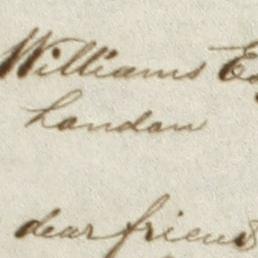 Williams Es
London
dear friend